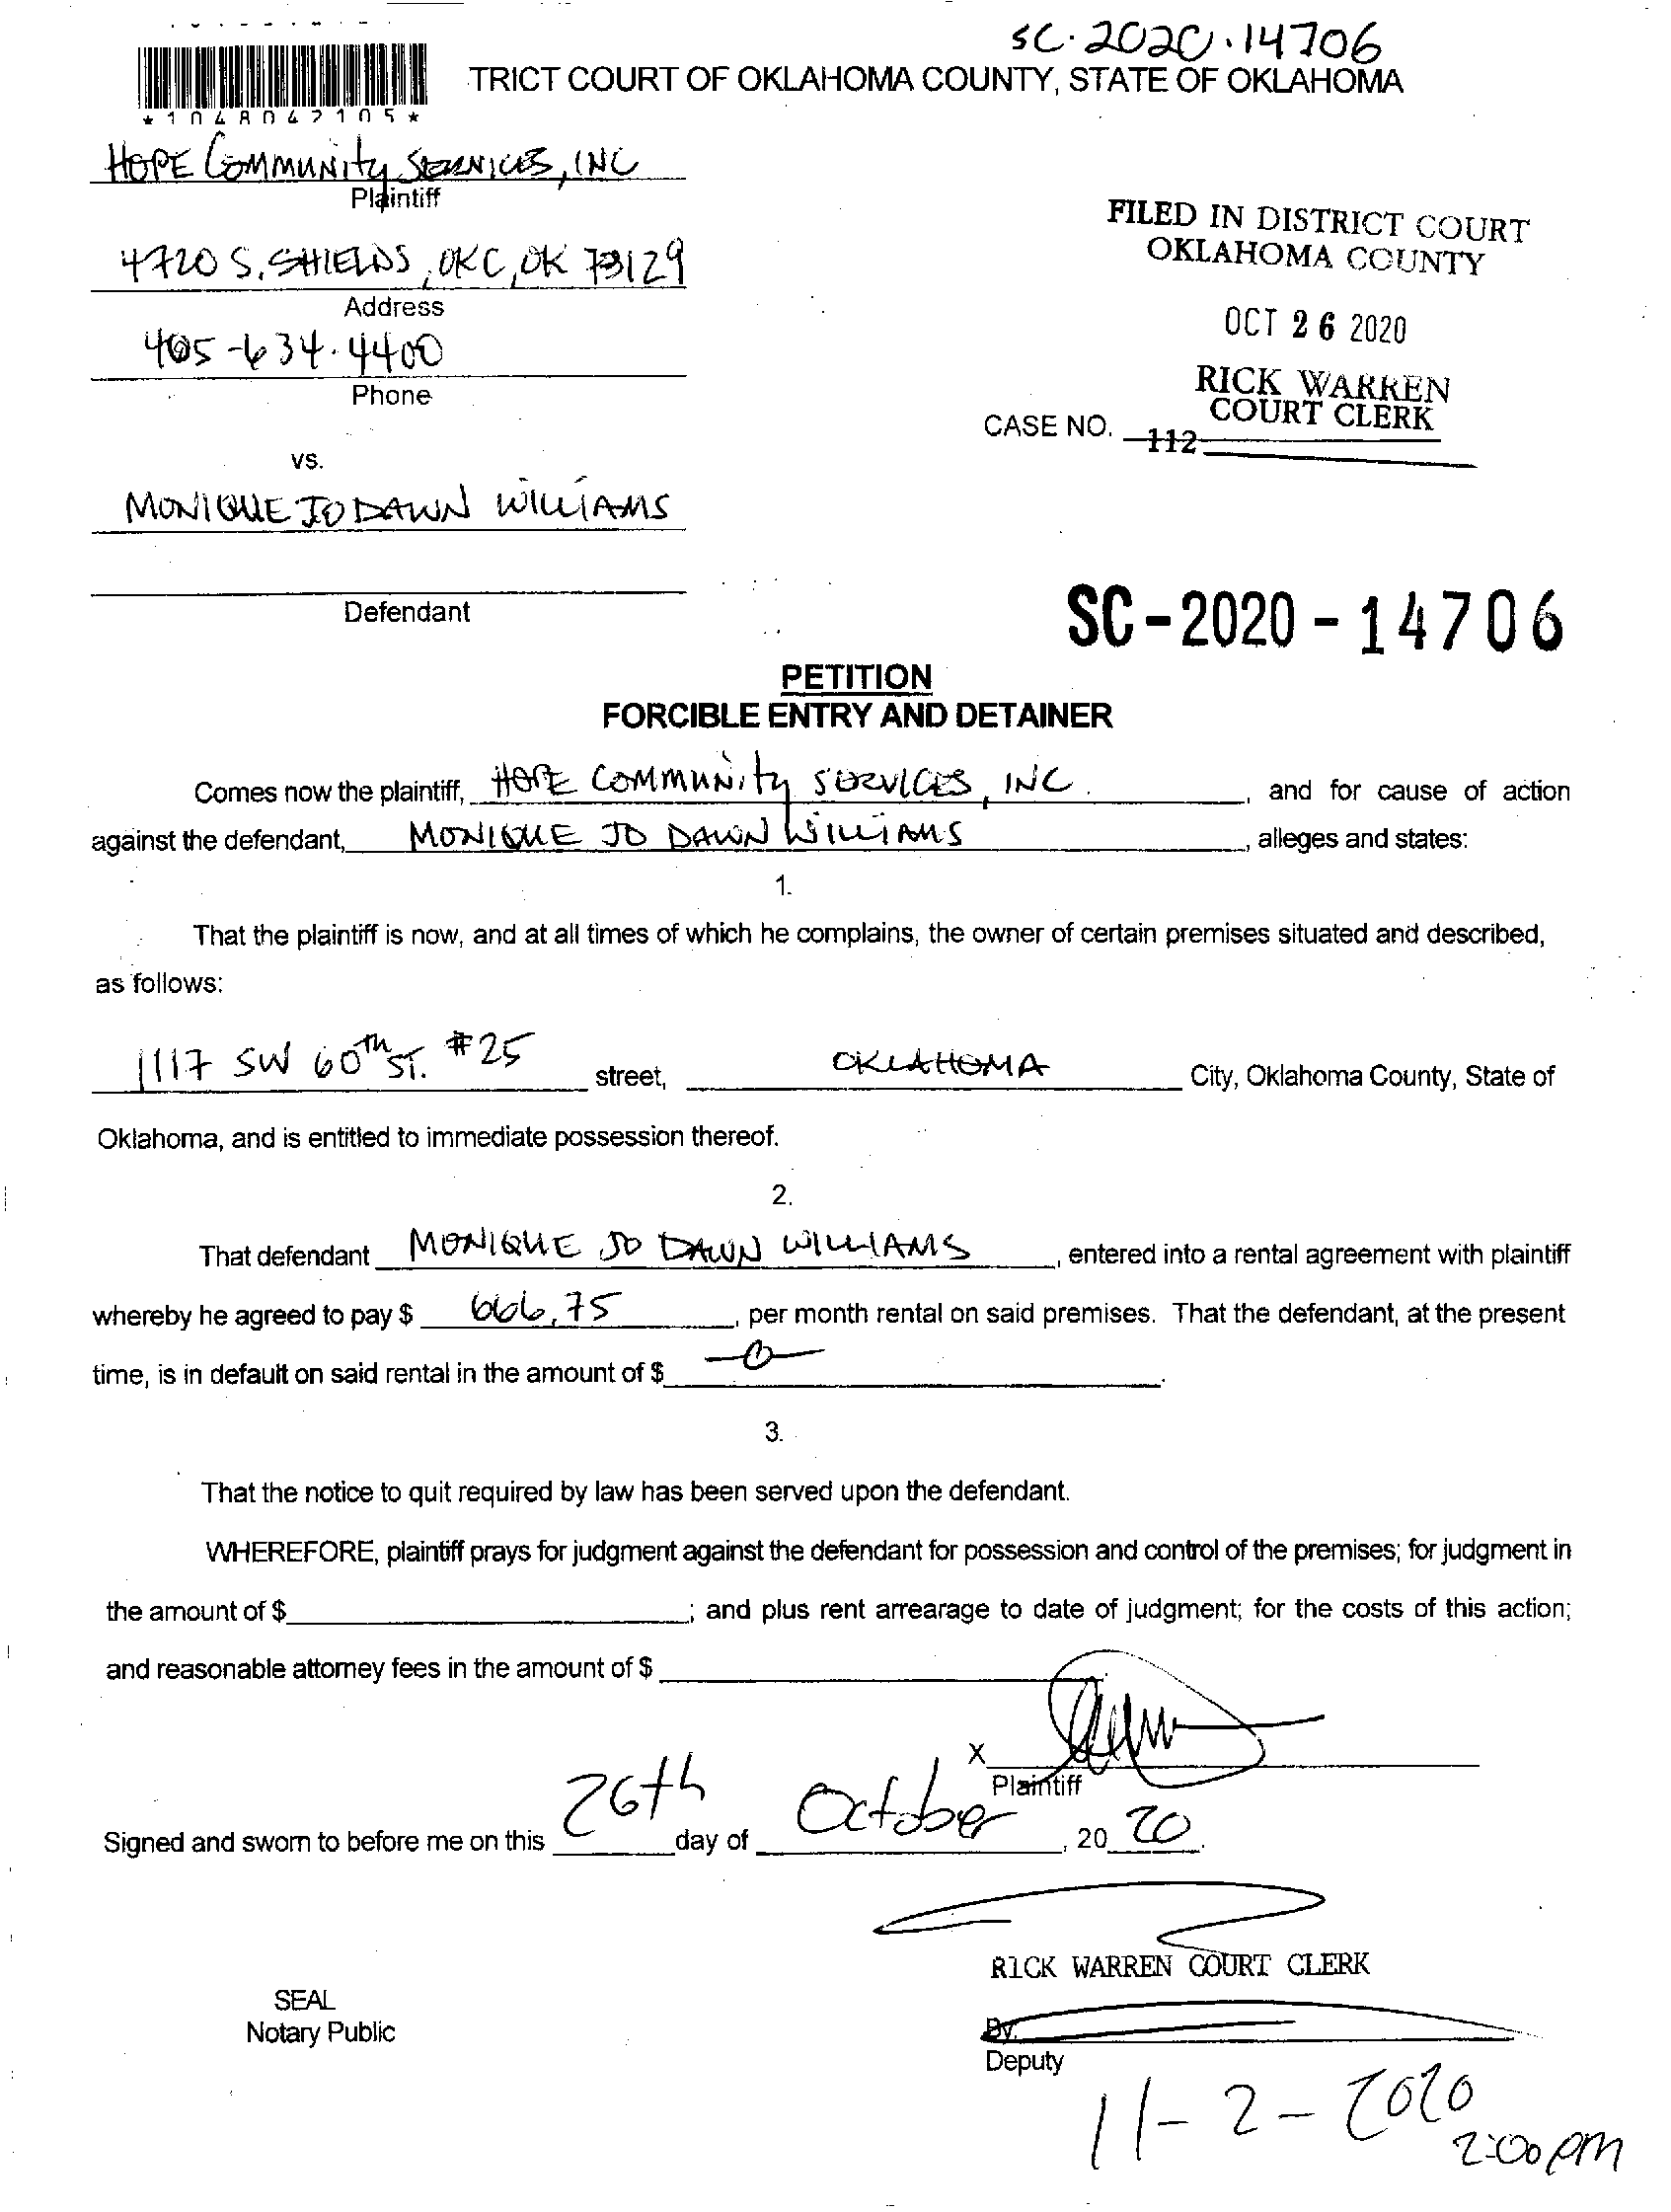 SC-2020-14706
TRICT COURT OF OKLAHOMA COUNTY, STATE OF OKLAHOMA
*1048042105*
HOPE COMMUNITY SERVICES, INC
Plaintiff
4720 S. SHIELDS, OKC, OK 73129
Address
405-634-4400
Phone
FILED IN DISTRICT COURT
OKLAHOMA COUNTY
OCT 26 2020
RICK WARREN
COURT CLERK
CASE NO. 112
vs.
MONIQUE JO DAWN WILLIAMS
Defendant
SC-2020-14706
PETITION
FORCIBLE ENTRY AND DETAINER
Comes now the plaintiff, HOPE COMMUNITY SERVICES, INC. , and for cause of action
against the defendant, MONIQUE JO DAWN WILLIAMS , alleges and states:
1.
That the plaintiff is now, and at all times of which he complains, the owner of certain premises situated and described,
as follows:
1117 SW 60th ST. #25 street, OKLAHOMA City, Oklahoma County, State of
Oklahoma, and is entitled to immediate possession thereof.
2.
That defendant MONIQUE JO DAWN WILLIAMS , entered into a rental agreement with plaintiff
whereby he agreed to pay $ 666.75 , per month rental on said premises. That the defendant, at the present
time, is in default on said rental in the amount of $ -0- .
3.
That the notice to quit required by law has been served upon the defendant.
WHEREFORE, plaintiff prays for judgment against the defendant for possession and control of the premises; for judgment in
the amount of $ ; and plus rent arrearage to date of judgment; for the costs of this action;
and reasonable attorney fees in the amount of $
X
Plaintiff
Signed and sworn to before me on this 26th day of October , 20 20 .
RICK WARREN COURT CLERK
SEAL
Notary Public
By.
Deputy
11-2-2020
2:00 PM